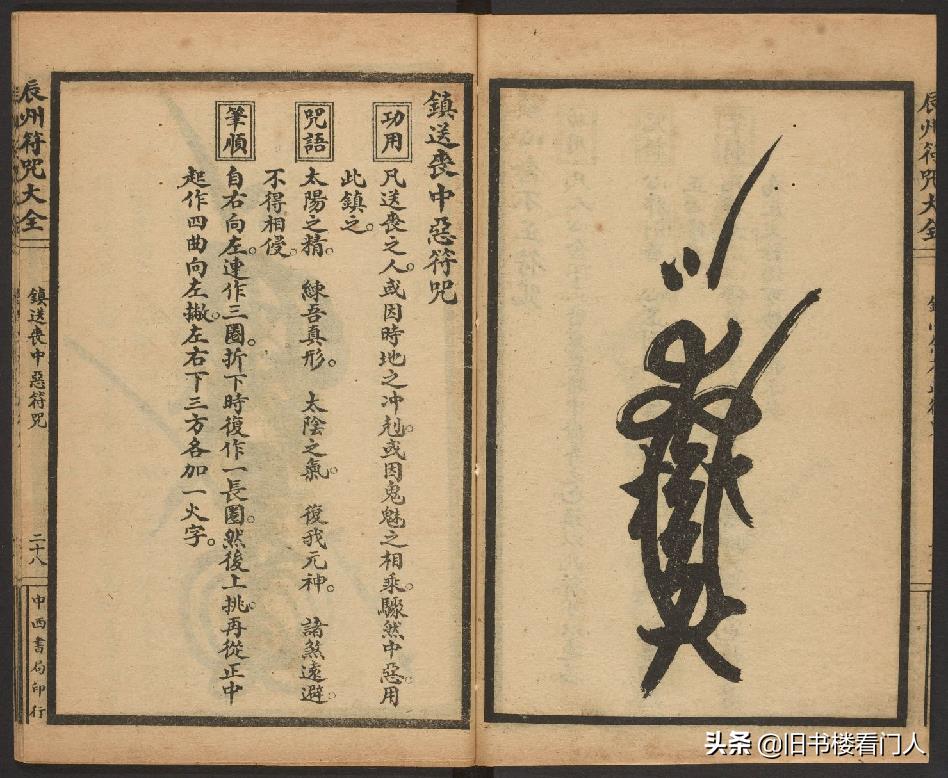 鎮送喪中惡符咒
功用
凡送喪之人。或因時地之冲剋。或因鬼魅之相乘。驟然中惡。用
此鎮之。
咒語
太陽之精。 練吾真形。 太陰之氣。 復我元神。 諸煞遠避。
不得相侵。
筆順
自右向左。連作三圈。折下時復作一長圈。然後上挑。再從正中
起作四曲向左撇。左右下三方各加一火字。
辰州符咒大全
鎮送喪中惡符咒
二十八
中西書局印行
辰州符咒大全
头条 @旧书楼看门人